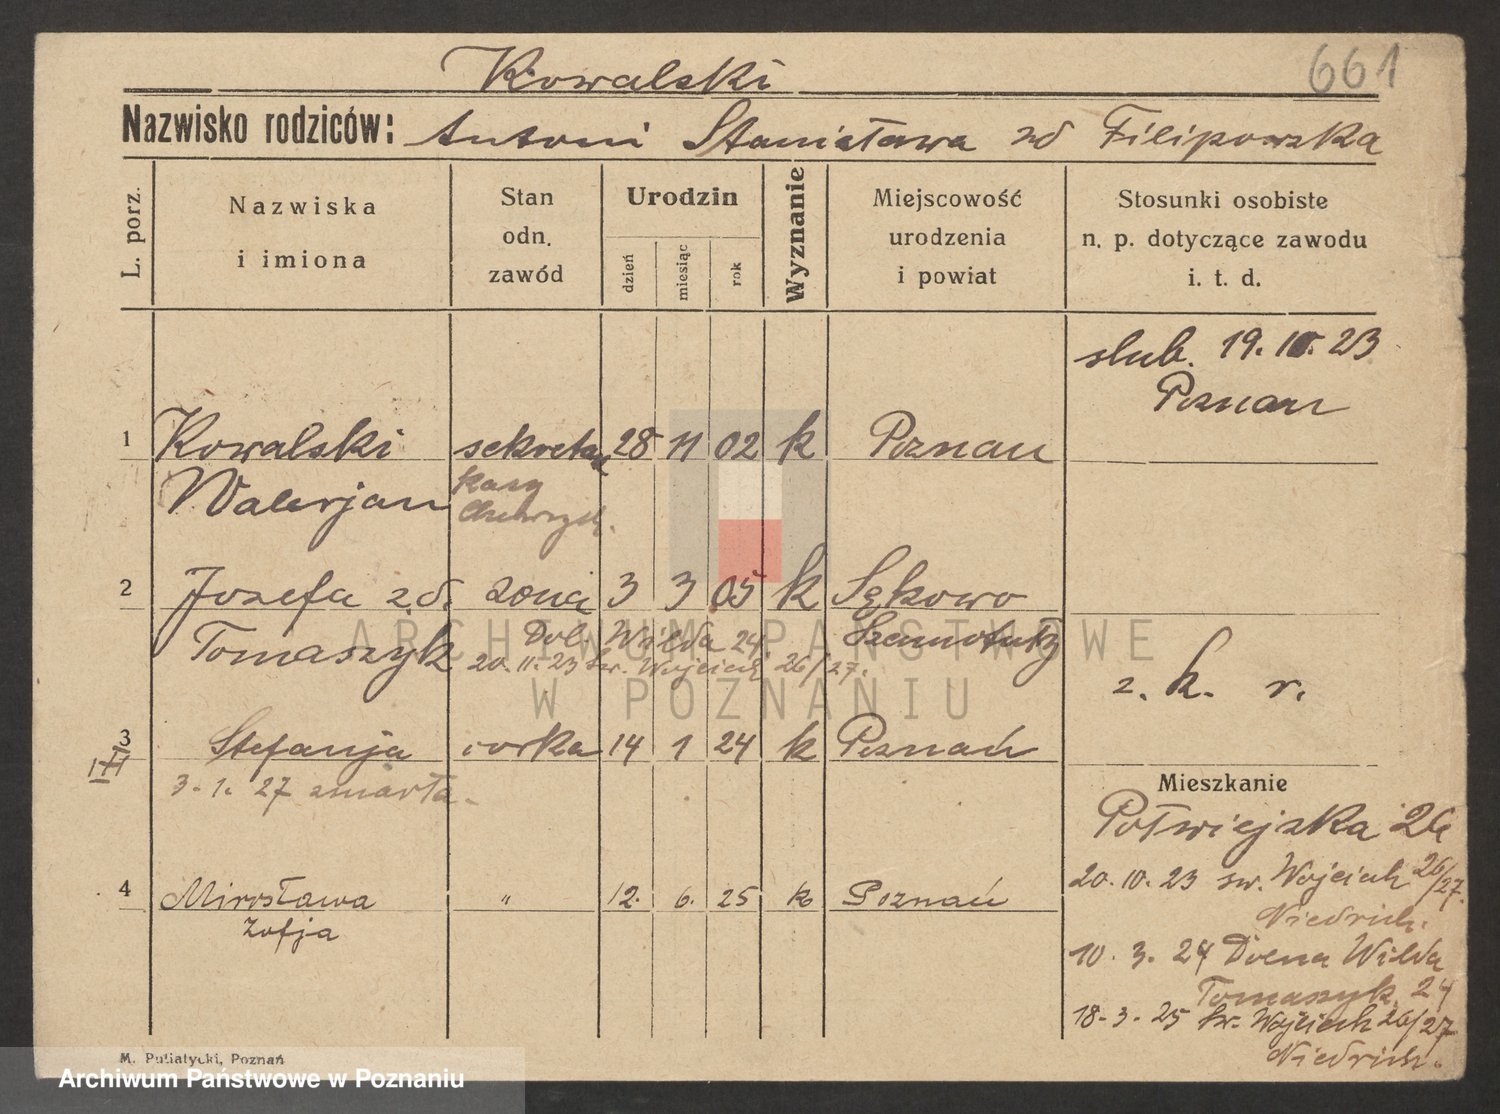 661
Kowalski
Nazwisko rodziców: Antoni Stanisława zd Filipowska
L. porz.
Nazwiska i imiona
Stan odn. zawód
Urodzin
dzień
miesiąc
rok
Wyznanie
Miejscowość urodzenia i powiat
Stosunki osobiste n. p. dotyczące zawodu i. t. d.
slub. 19. 10. 23
Poznan
1 Kowalski sekretarz 28 11 02 k Poznan
Walerjan Kasy
2 Jozefa z d. zona 3 3 05 k Sękowo
Tomaszyk Dol. Wilda 24. Szamotuły
20. 11. 23 św. Wojciech 26/27.
z. k. r.
3 Stefanja corka 14 1 24 k Poznań
3. 1. 27 zmarła.
Mieszkanie
Półwiejska 26
20. 10. 23 sw. Wojciech 26/27.
Niedrich.
4 Mirosława " 12. 6. 25 k Poznań
Zofja
10. 3. 24 Dolna Wilda 24
Tomaszyk
18. 3. 25 św. Wojciech 26/27
Niedrich.
M. Putiatycki, Poznań
ARCHIWUM PAŃSTWOWE
W POZNANIU
Archiwum Państwowe w Poznaniu